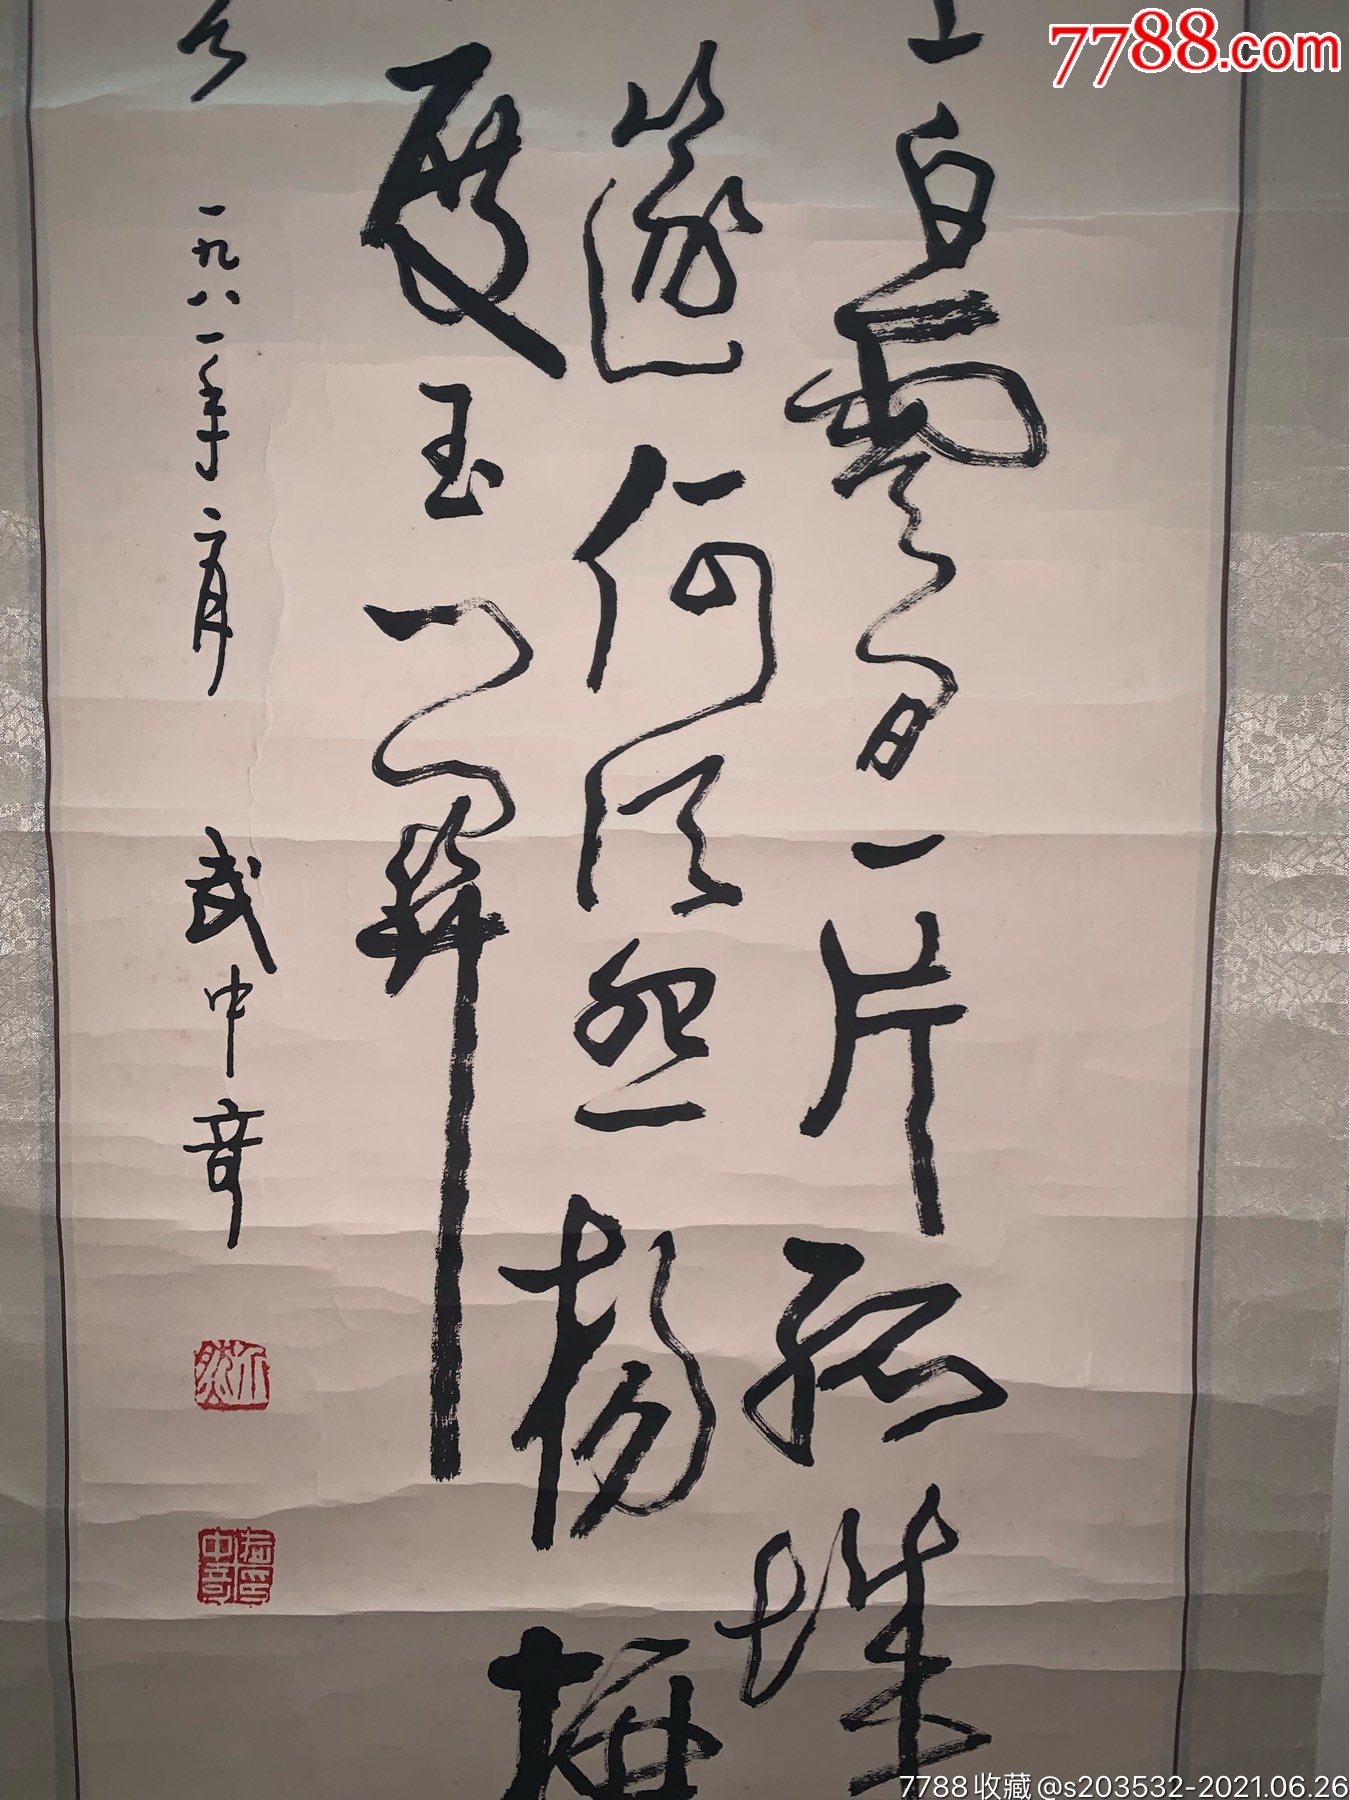 7788.com
上白雲間一片孤城
篴何須怨楊柳
度玉門關
一九八一年二月 武中奇
武中奇印
7788收藏@s203532-2021.06.26